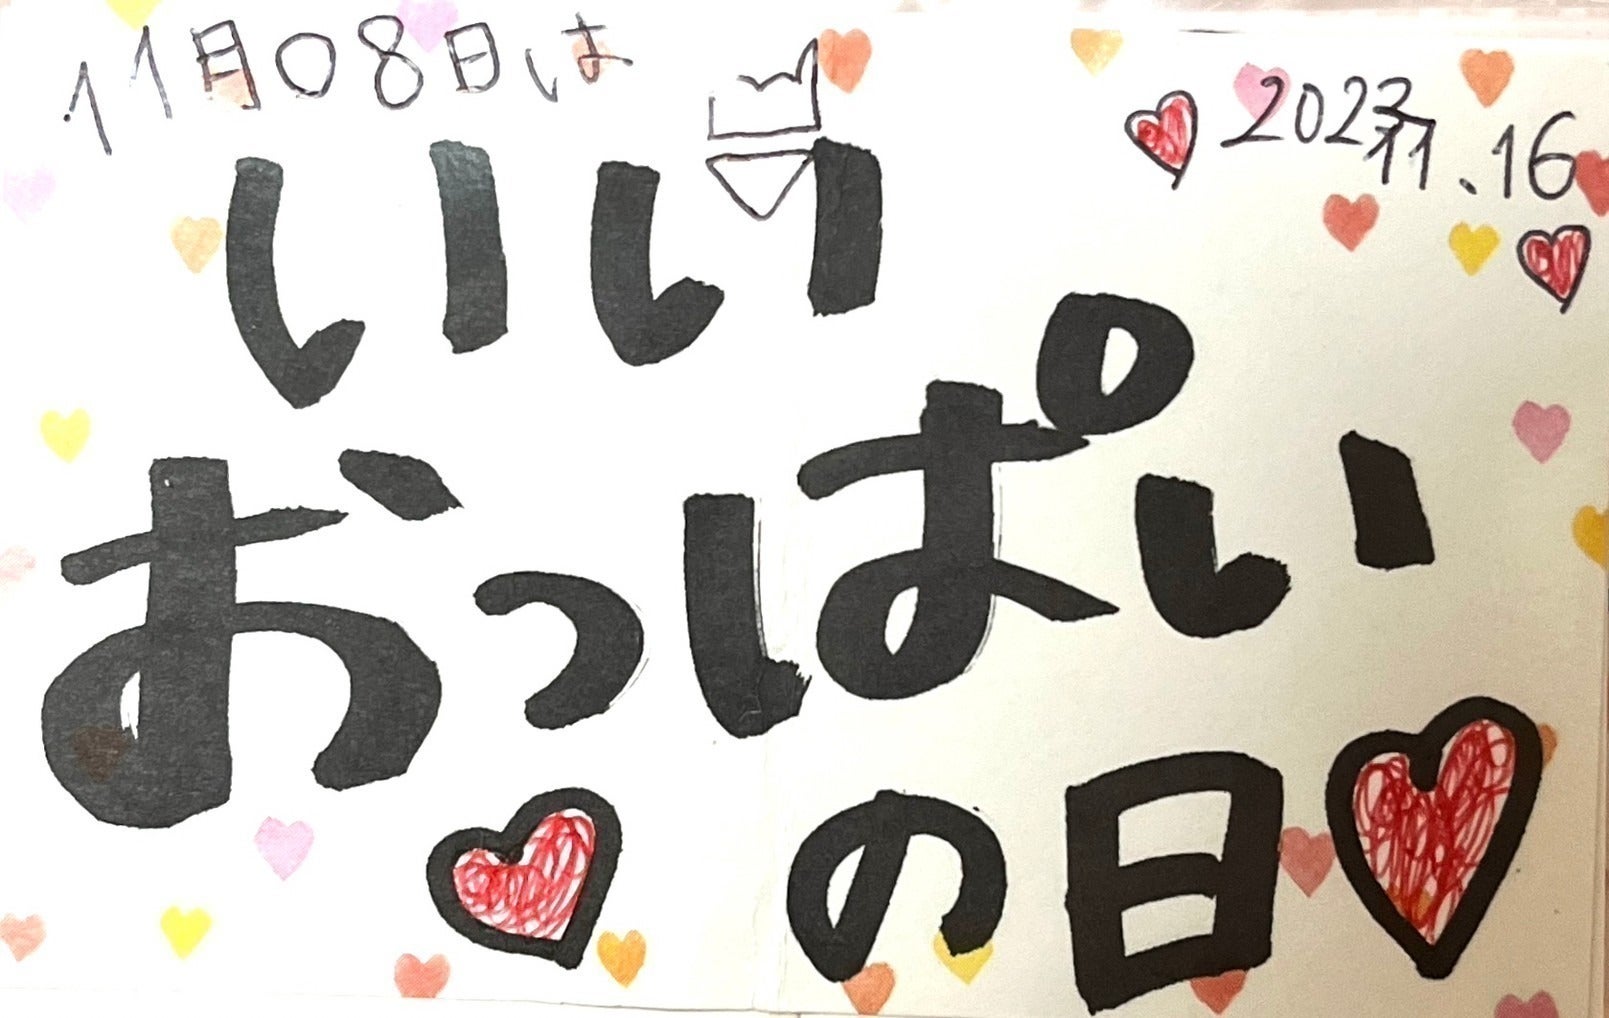 11月08日は
2023
11.16
いい
おっぱい
の日